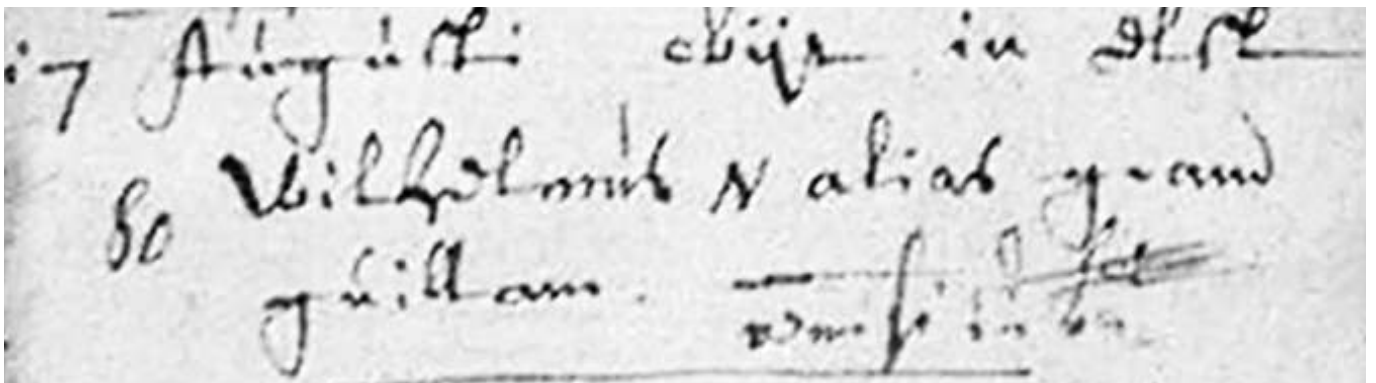 17 Augusti obijt in
80 Wilhelmus N alias grand
guillam.